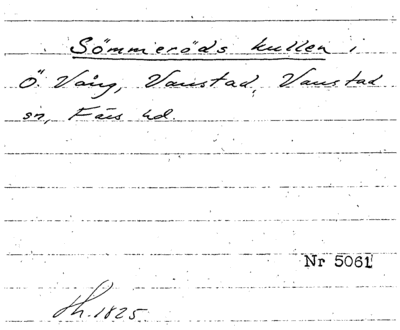 Sömmeröds kullen i
Ö. Vång, Vanstad, Vanstad
sn, Färs hd.
Nr 5061
Sh. 1825